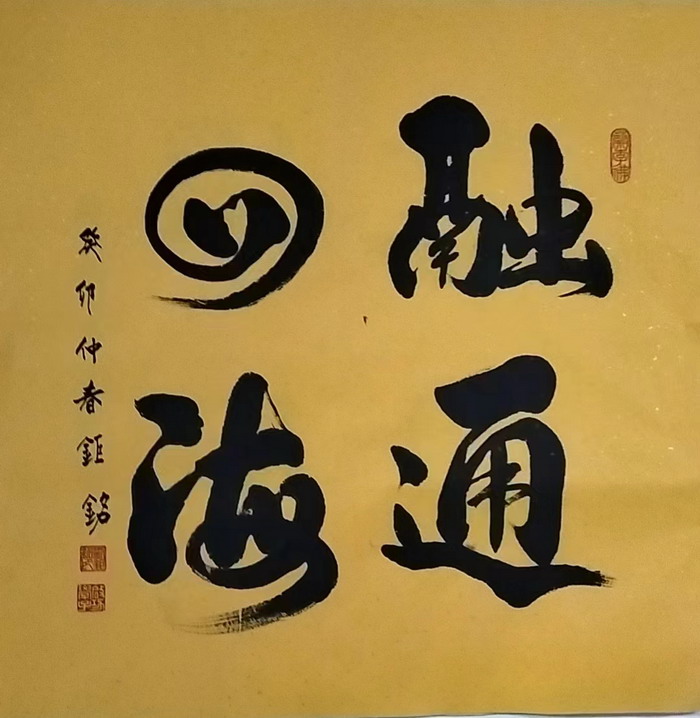 融通
四海
癸卯仲春鉅銘